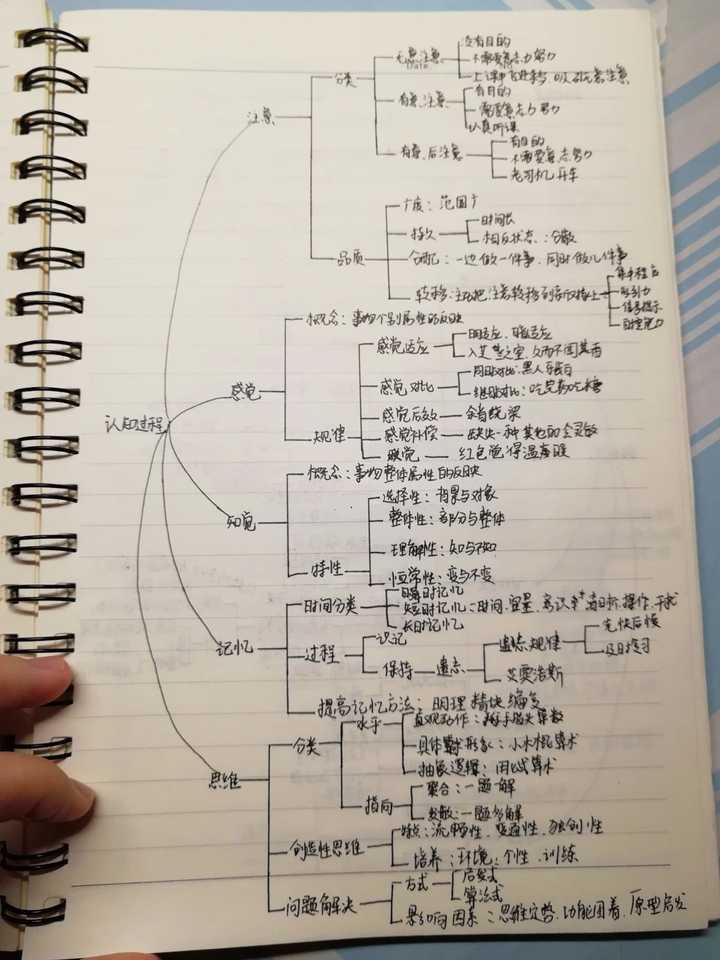 认知过程
注意
分类
无意注意
没有目的
不需要意志力努力
有意注意
有目的
需要意志力努力
认真听课
有意后注意
有目的
不需要意志努力
老司机开车
品质
广度：范围广
持久
时间长
相反状态：分散
分配：一边做一件事，同时做几件事
转移：主动把注意转移到新对接上
吸引力
信号提示
自控能力
感觉
概念：事物个别属性的反映
规律
感觉适应
明适应、暗适应
入芝兰之室，久而不闻其香
感觉对比
同时对比：黑人牙膏
继时对比：吃完药吃糖
感觉后效
余音绕梁
感觉补偿
缺失一种其他的会灵敏
联觉
红色觉得温暖
知觉
概念：事物整体属性的反映
特性
选择性：背景与对象
整体性：部分与整体
理解性：知与不知
恒常性：变与不变
记忆
时间分类
瞬时记忆
短时记忆：时间、容量、
长时记忆
过程
识记
保持
遗忘
遗忘规律
先快后慢
及时复习
艾宾浩斯
提高记忆方法：明理精块编复
思维
分类
水平
直观动作：掰手指头算数
具体形象：小木棍算术
抽象逻辑：用公式算术
指向
聚合：一题一解
发散：一题多解
创造性思维
特点：流畅性、变通性、独创性
培养：环境、个性、训练
问题解决
方式
启发式
算法式
影响因素：思维定势、功能固着、原型启发